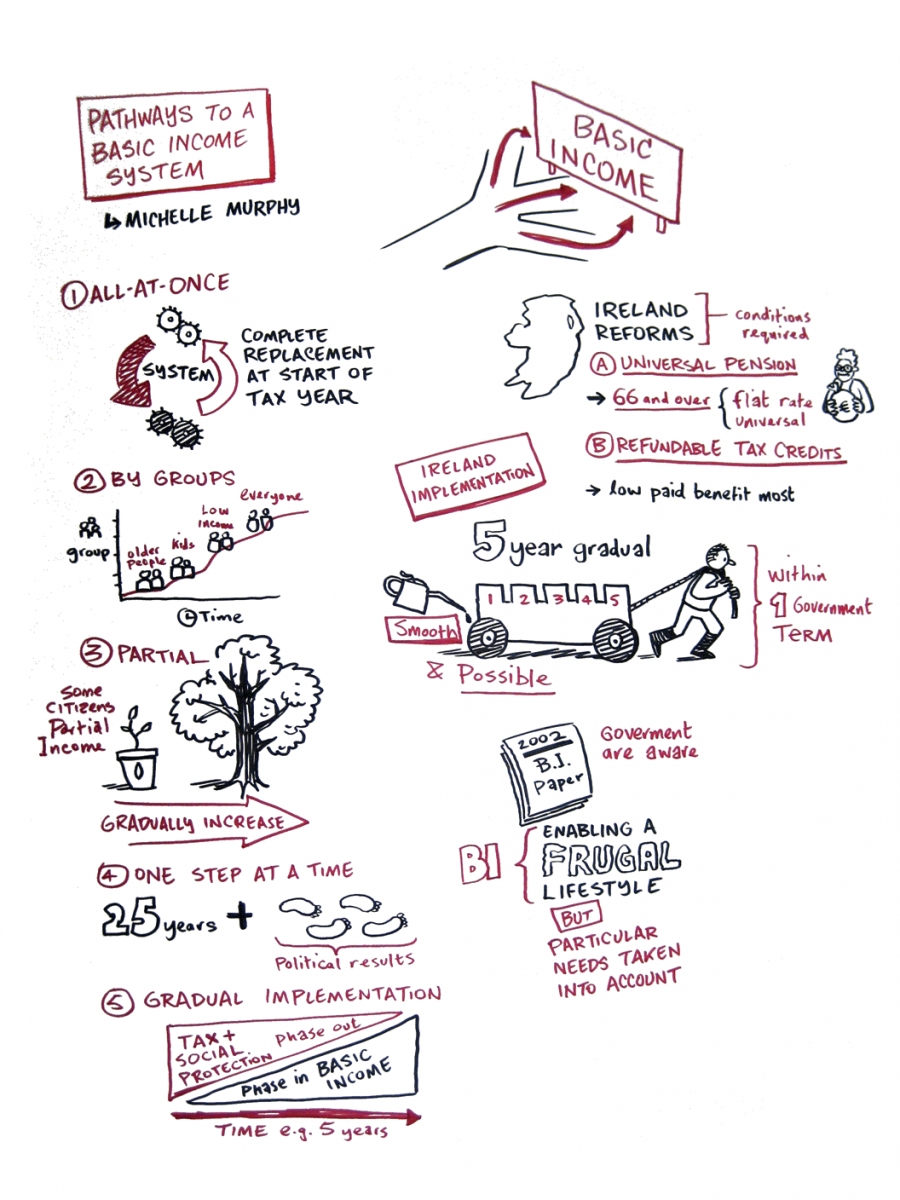 PATHWAYS TO A
BASIC INCOME
SYSTEM
MICHELLE MURPHY
BASIC
INCOME
1 ALL-AT-ONCE
SYSTEM
COMPLETE
REPLACEMENT
AT START OF
TAX YEAR
2 BY GROUPS
group
older
people
kids
Low
income
everyone
Time
3 PARTIAL
Some
CITIZENS
Partial
Income
GRADUALLY INCREASE
4 ONE STEP AT A TIME
25 years +
Political results
5 GRADUAL IMPLEMENTATION
TAX +
SOCIAL
PROTECTION
Phase out
Phase in BASIC
INCOME
TIME e.g. 5 years
IRELAND
REFORMS
conditions
required
A UNIVERSAL PENSION
→ 66 and over
flat rate
universal
B REFUNDABLE TAX CREDITS
→ low paid benefit most
IRELAND
IMPLEMENTATION
5 year gradual
1 2 3 4 5
Smooth
& Possible
within
1 Government
TERM
2002
B.I.
Paper
Goverment
are aware
BI
ENABLING A
FRUGAL
LIFESTYLE
BUT
PARTICULAR
NEEDS TAKEN
INTO ACCOUNT